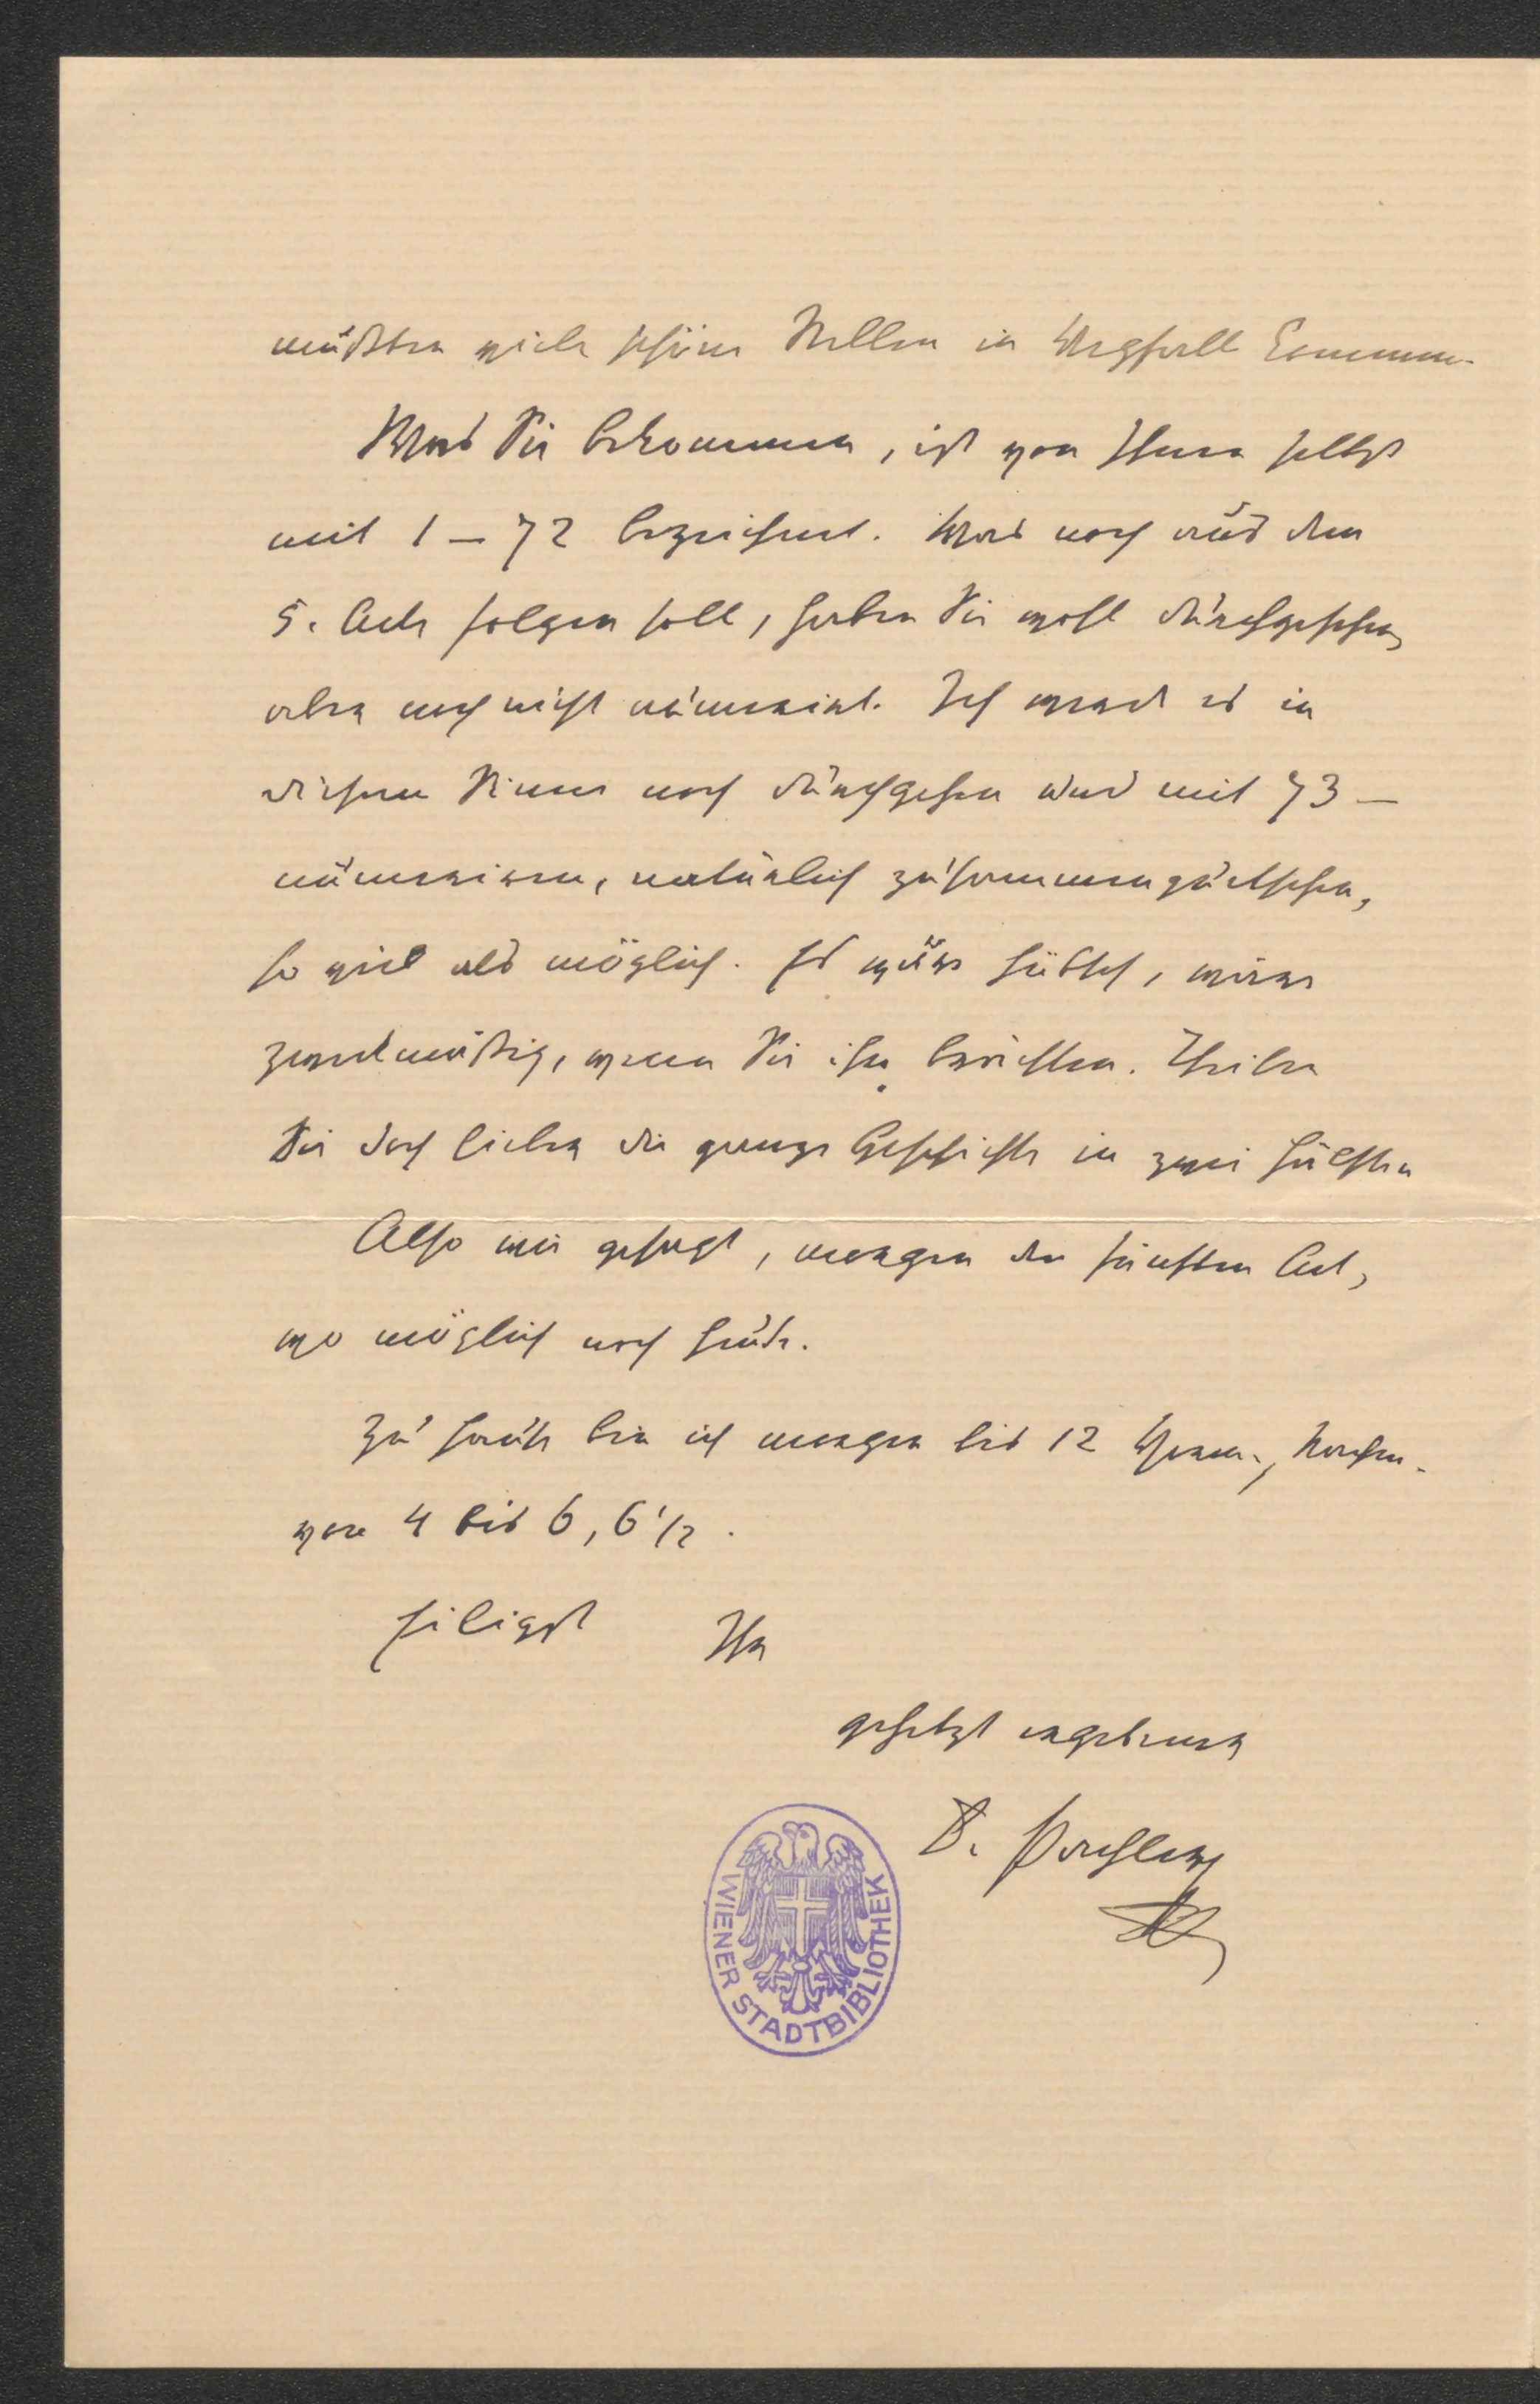 müßten viele schöne Stellen in Wegfall kommen.
Was Sie bekommen, ist von Ihnen selbst
mit 1 – 72 bezeichnet. Was noch aus dem
5. Acte folgen soll, haben Sie wohl durchgesehen,
aber noch nicht numerirt. Ich werde es in
diesem Sinne noch durchgehen und mit 73 –
numeriren, natürlich
so viel als möglich. Es wäre hübsch, wäre
zweckmäßig, wenn Sie ihn brächten. Theilen
Sie doch lieber die ganze Geschichte in zwei Hälften
Also wie gesagt, morgen den fünften Act,
wo möglich noch heute.
Zu Hause bin ich morgen bis 12 Vorm., Nachm.
von 4 bis 6, 6 1/2.
Eiligst Ihr
ergebener
WIENER STADTBIBLIOTHEK